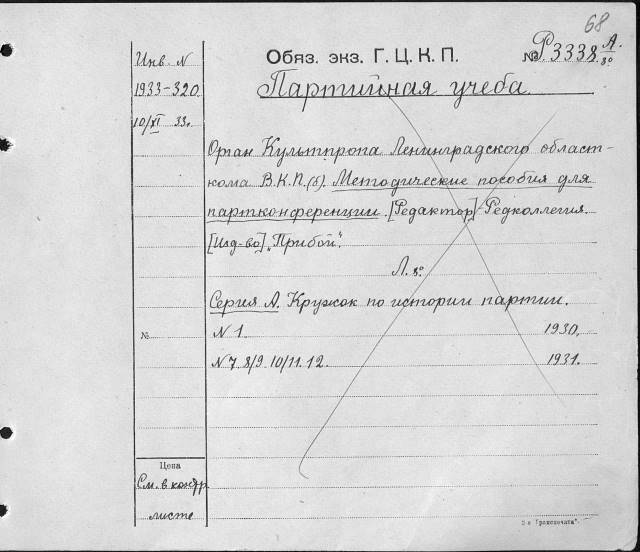 68
Инв. N
1933-320
10/XI 33г.
Обяз. экз. Г. Ц. К. П.
№ Р3338 А. 8°
Партийная учеба
Орган Культпропа Ленинградского област-
кома В.К.П.(б). Методические пособия для
партконференции. [Редактор] Редколлегия.
[Изд-во] „Прибой“.
Л. 8°
Серия А. Кружок по истории партии.
№ N 1. 1930.
N 7. 8/9. 10/11. 12. 1931.
Цена
См. в контр.
листе